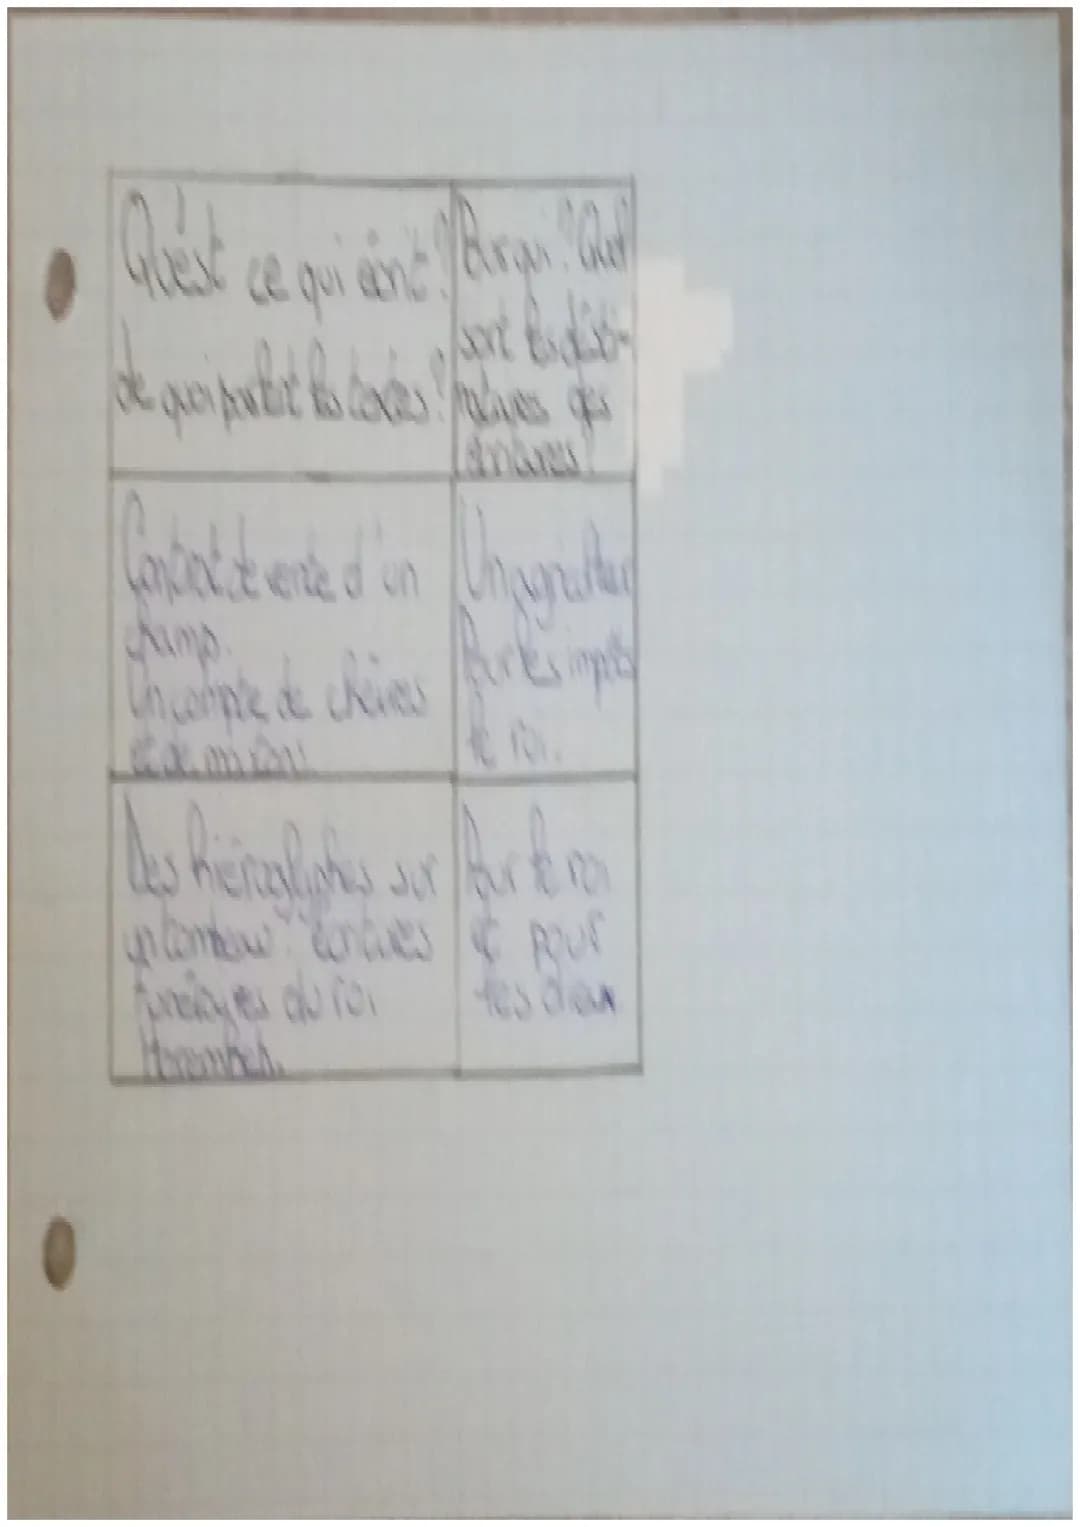 Qu'est ce qui écrit?
de quoi parlent les textes?
Pour qui? Quel
sont les desti-
nataires des
écritures?
Contrat de vente d'un
champ.
Un compte de chèvres
et de moutons.
Un agriculteur
Pour les impôts
le roi.
Des hiéroglyphes sur
un tombeau. écritures
funéraires du roi
Horemheb.
Pour le roi
et pour
les dieux